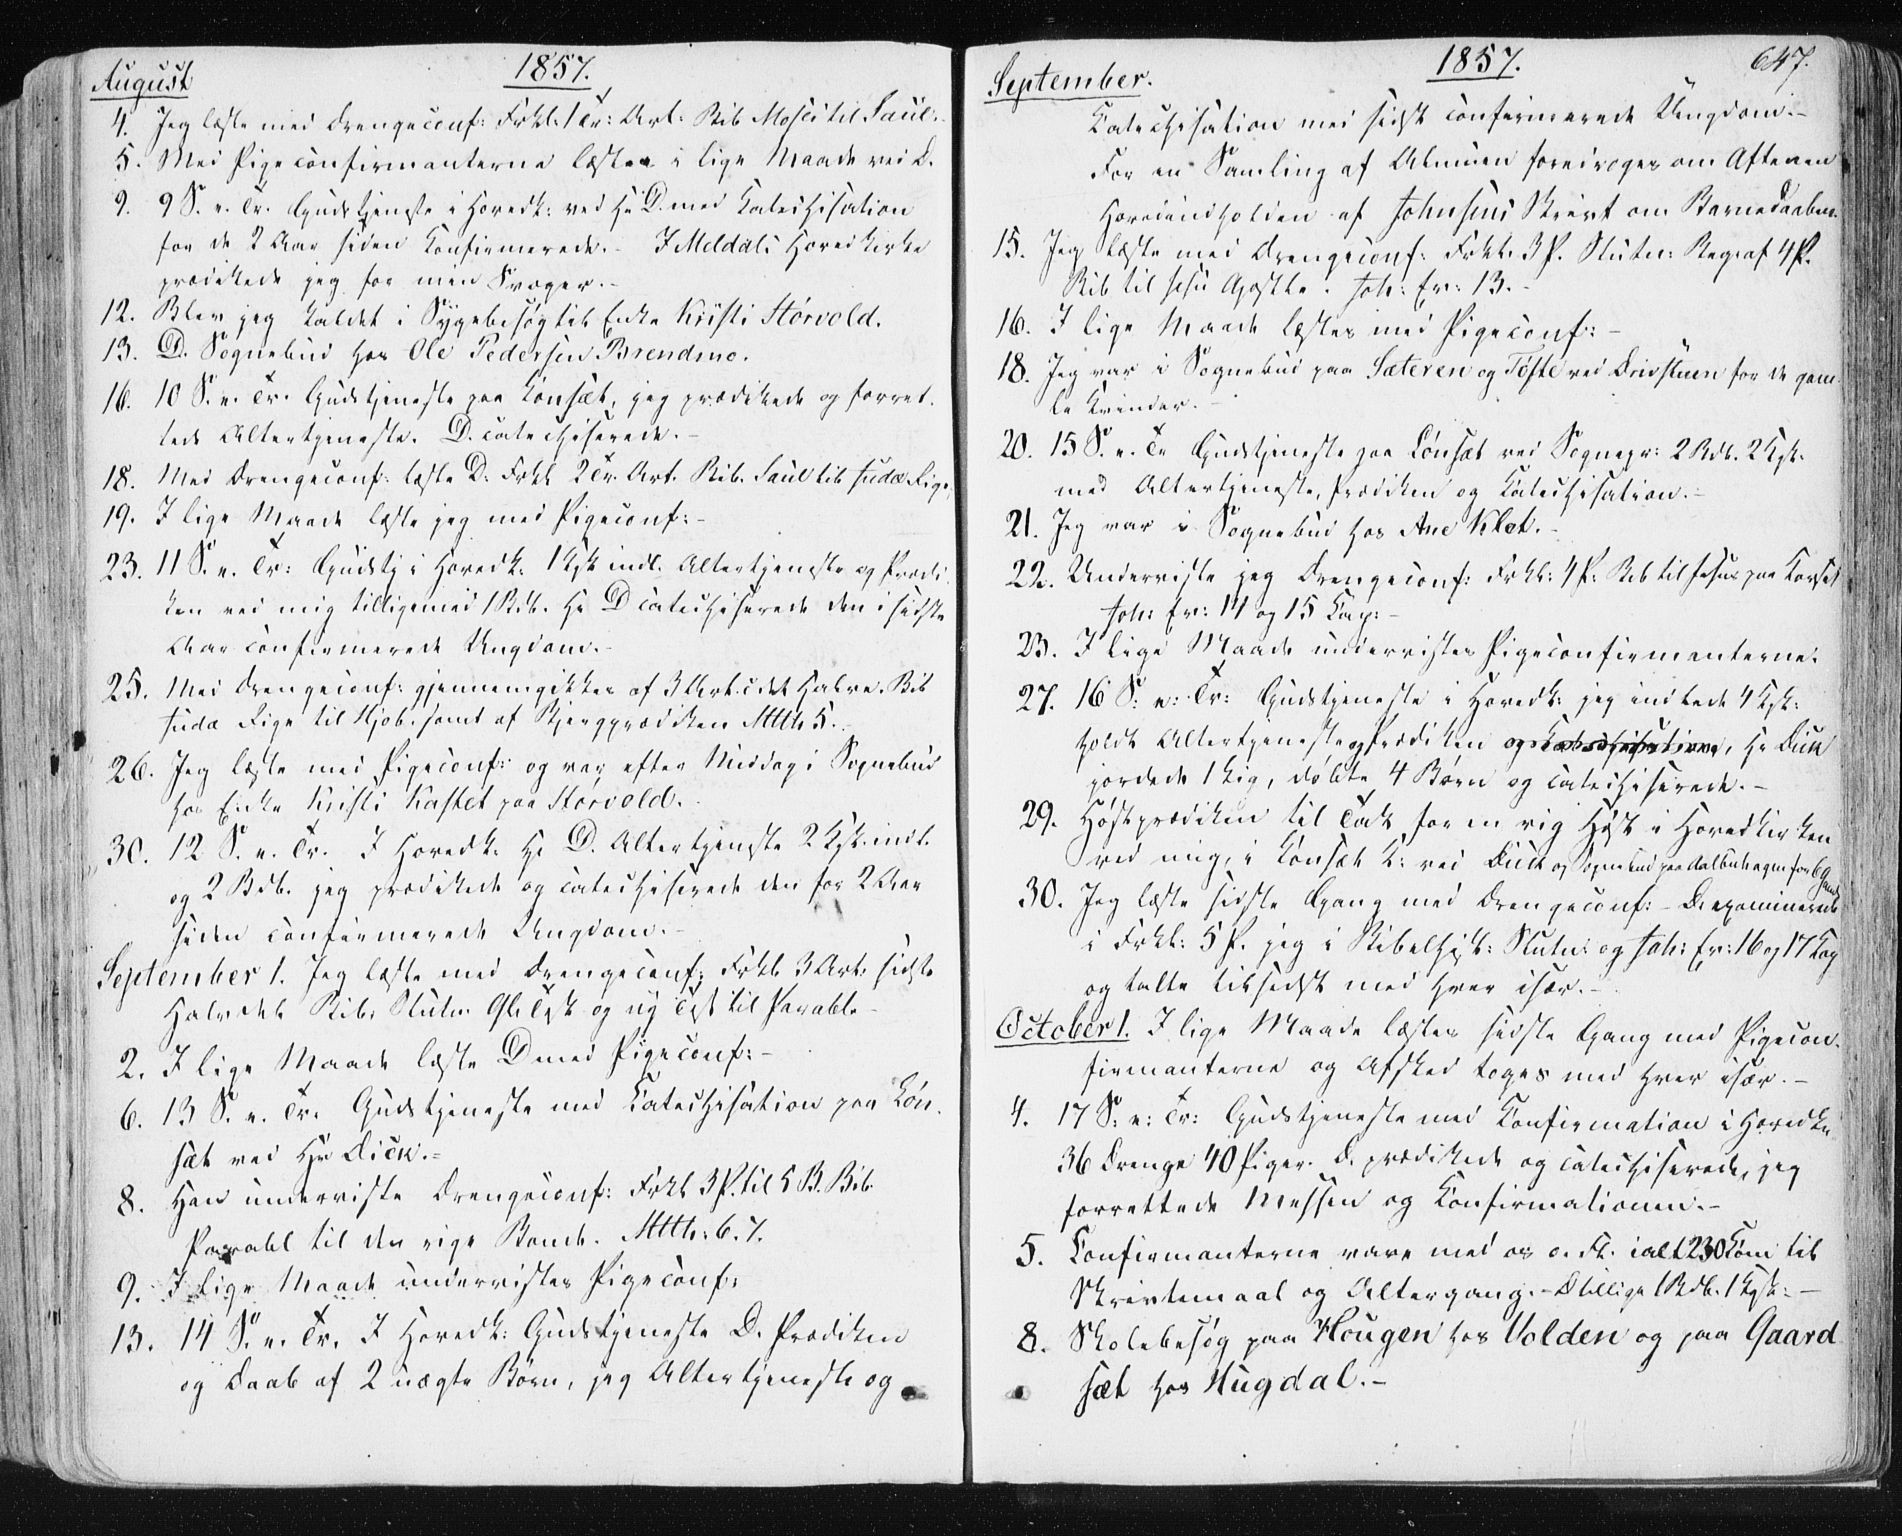 August
1857.
4. Jeg læste med Drengeconf: Frkl: 1 Tr: Art: Bib Mosei til Saul.
5. Med Pigeconfirmanterne læstes i lige Maade ved D.
9. 9 S. e. Tr. Gudstjeneste i Hovedk: ved Hr D. med Katechisation
for de 2 Aar siden Confirmerede. - I Meldals Hovedkirke
prædikede jeg for min Svoger. -
12. Blev jeg kaldet i Sygebesøg til Enke Kristi Störvold.
13. D. Sognebud hos Ole Pedersen Brendmo.
16. 10 S. e. Tr. Gudstjeneste paa Lønsæt, jeg prædikede og forret-
tede Altertjeneste. D. catechiserede. -
18. Med Drengeconf: læste D: Frkl 2 Tr. Art. Bib. Saul til Judæ Rige.
19. I lige Maade læste jeg med Pigeconf: -
23. 11 S. e. Tr: Gudstj i Hovedk: 1 Kjk indl. Altertjeneste og Prædi-
ken ved mig tilligemed 1 Bdb. Hr D catechiserede den i sidste
Aar confirmerede Ungdom. -
25. Med Drengeconf: gjennemgikkes af 3 Art. det Halve. Bib
Judæ Rige til Hjob. samt af Bjergprædiken Mtth 5. -
26. Jeg læste med Pigeconf: og var efter Middag i Sognebud
hos Enke Kristi Kastet paa Störvold.
30. 12 S. e. Tr. I Hovedk. Hr D. Altertjeneste 2 Kjk. indl.
og 2 Bdb. jeg prædikede og catechiserede den for 2 Aar
siden confirmerede Ungdom. -
September 1. Jeg læste med Drengeconf: Frkl 3 Art: sidste
Halvdel Bib. Slutn. Gl. Test og ny Test til Parable -
2. I lige Maade læste D med Pigeconf: -
6. 13 S. e. Tr. Gudstjeneste med Catechisation paa Løn-
sæt ved Hr Dick. -
8. Han underviste Drengeconf: Frkl 3 P. til 5 B. Bib.
Parabel til den rige Bonde. Mtth: 6. 7.
9. I lige Maade undervistes Pigeconf:
13. 14 S. e. Tr. I Hovedk: Gudstjeneste D. Prædiken
og Daab af 2 uægte Børn, jeg Altertjeneste og
September.
1857.
647.
Catechisation med sidst confirmerede Ungdom. -
For en Samling af Almuen foredroges om Aftenen
Hovedindholden af Johnsens Skrivt om Barnedaaben.
15. Jeg læste med Drengeconf: Frkl. 3 P. Slutn: Beg: af 4 P.
Bib til Jesu Apostle. Joh: Ev: 13. -
16. I lige Maade læstes med Pigeconf: -
18. Jeg var i Sognebud paa Sæteren og Töfte ved Drivstuen for de gam-
le Kvinder. -
20. 15 S. e. Tr Gudstjeneste paa Lönsæt ved Sognepr: 2 Bdb. 2 Kjk.
med Altertjeneste, Prædiken og Catechisation. -
21. Jeg var i Sognebud hos Ane Klet. -
22. Underviste jeg Drengeconf: Frkl: 4 P: Bib til Jesus paa Korset
Joh: Ev: 14 og 15 Cap: -
23. I lige Maade undervistes Pigeconfirmanterne.
27. 16 S: e: Tr: Gudstjeneste i Hovedk: jeg indlede 4 Kjk:
holdt Altertjeneste og Prædiken og Catechisation, Hr Dick
jordede 1 Lig, døbte 4 Børn og catechiserede. -
29. Høstprædiken til Tak for en rig Høst i Hovedkirken
ved mig, i Lønsæt K: ved Dick og Sognebud paa
30. Jeg læste sidste Gang med Drengeconf: - D. examinerede
i Frkl: 5 P. jeg i Bibelhist: Slutn: og Joh: Ev: 16 og 17 Cap
og talte tilsidst med Hver især. -
October 1. I lige Maade læstes sidste Gang med Pigecon-
firmanterne og Afsked toges med Hver især. -
4. 17 S: e: Tr: Gudstjeneste med Confirmation i Hovedk:
36 Drenge 40 Piger. D. prædikede og catechiserede, jeg
forrettede Messen og Confirmationen. -
5. Confirmanterne vare med os o. Fl. ialt 230 Com til
Skrivtemaal og Altergang. - D tillige 1 Bdb. 1 Kjk: -
8. Skolebesøg paa Hougen hos Volden og paa Gaard-
sæt hos Hugdal. -